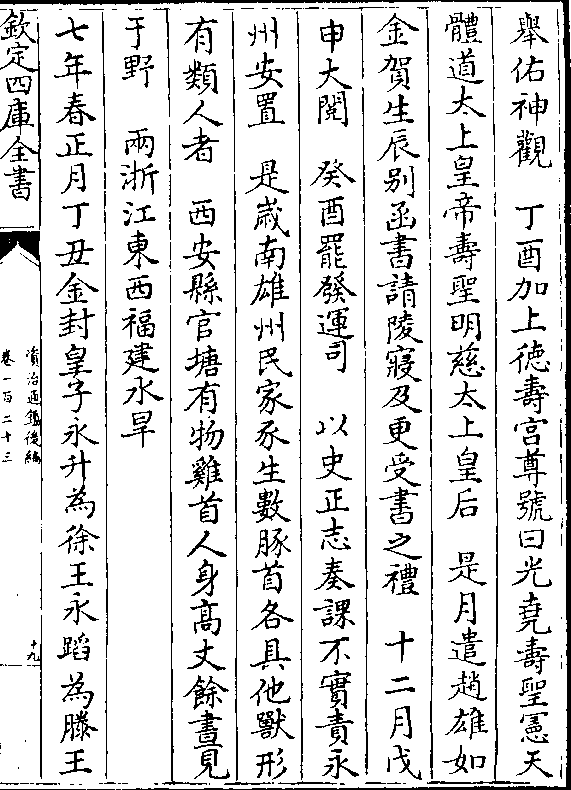 舉佑神觀　丁酉加上徳壽宮尊號曰光堯壽聖憲天
體道太上皇帝壽聖明慈太上皇后　是月遣趙雄如
金賀生辰别函書請陵寢及更受書之禮　十二月戊
申大閱　癸酉罷發運司　以史正志奏課不實責永
州安置　是歲南雄州民家豕生數豚首各具他獸形
有類人者　西安縣官塘有物雞首人身高丈餘晝見
于野　兩浙江東西福建水旱
七年春正月丁丑金封皇子永升為徐王永蹈為滕王
欽定四庫全書
資治通鑑後編
卷一百二十三
十九